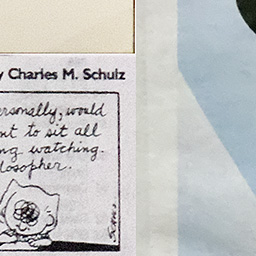 y Charles M. Schulz
ersonally, would
nt to sit all
ng watching.
losopher.